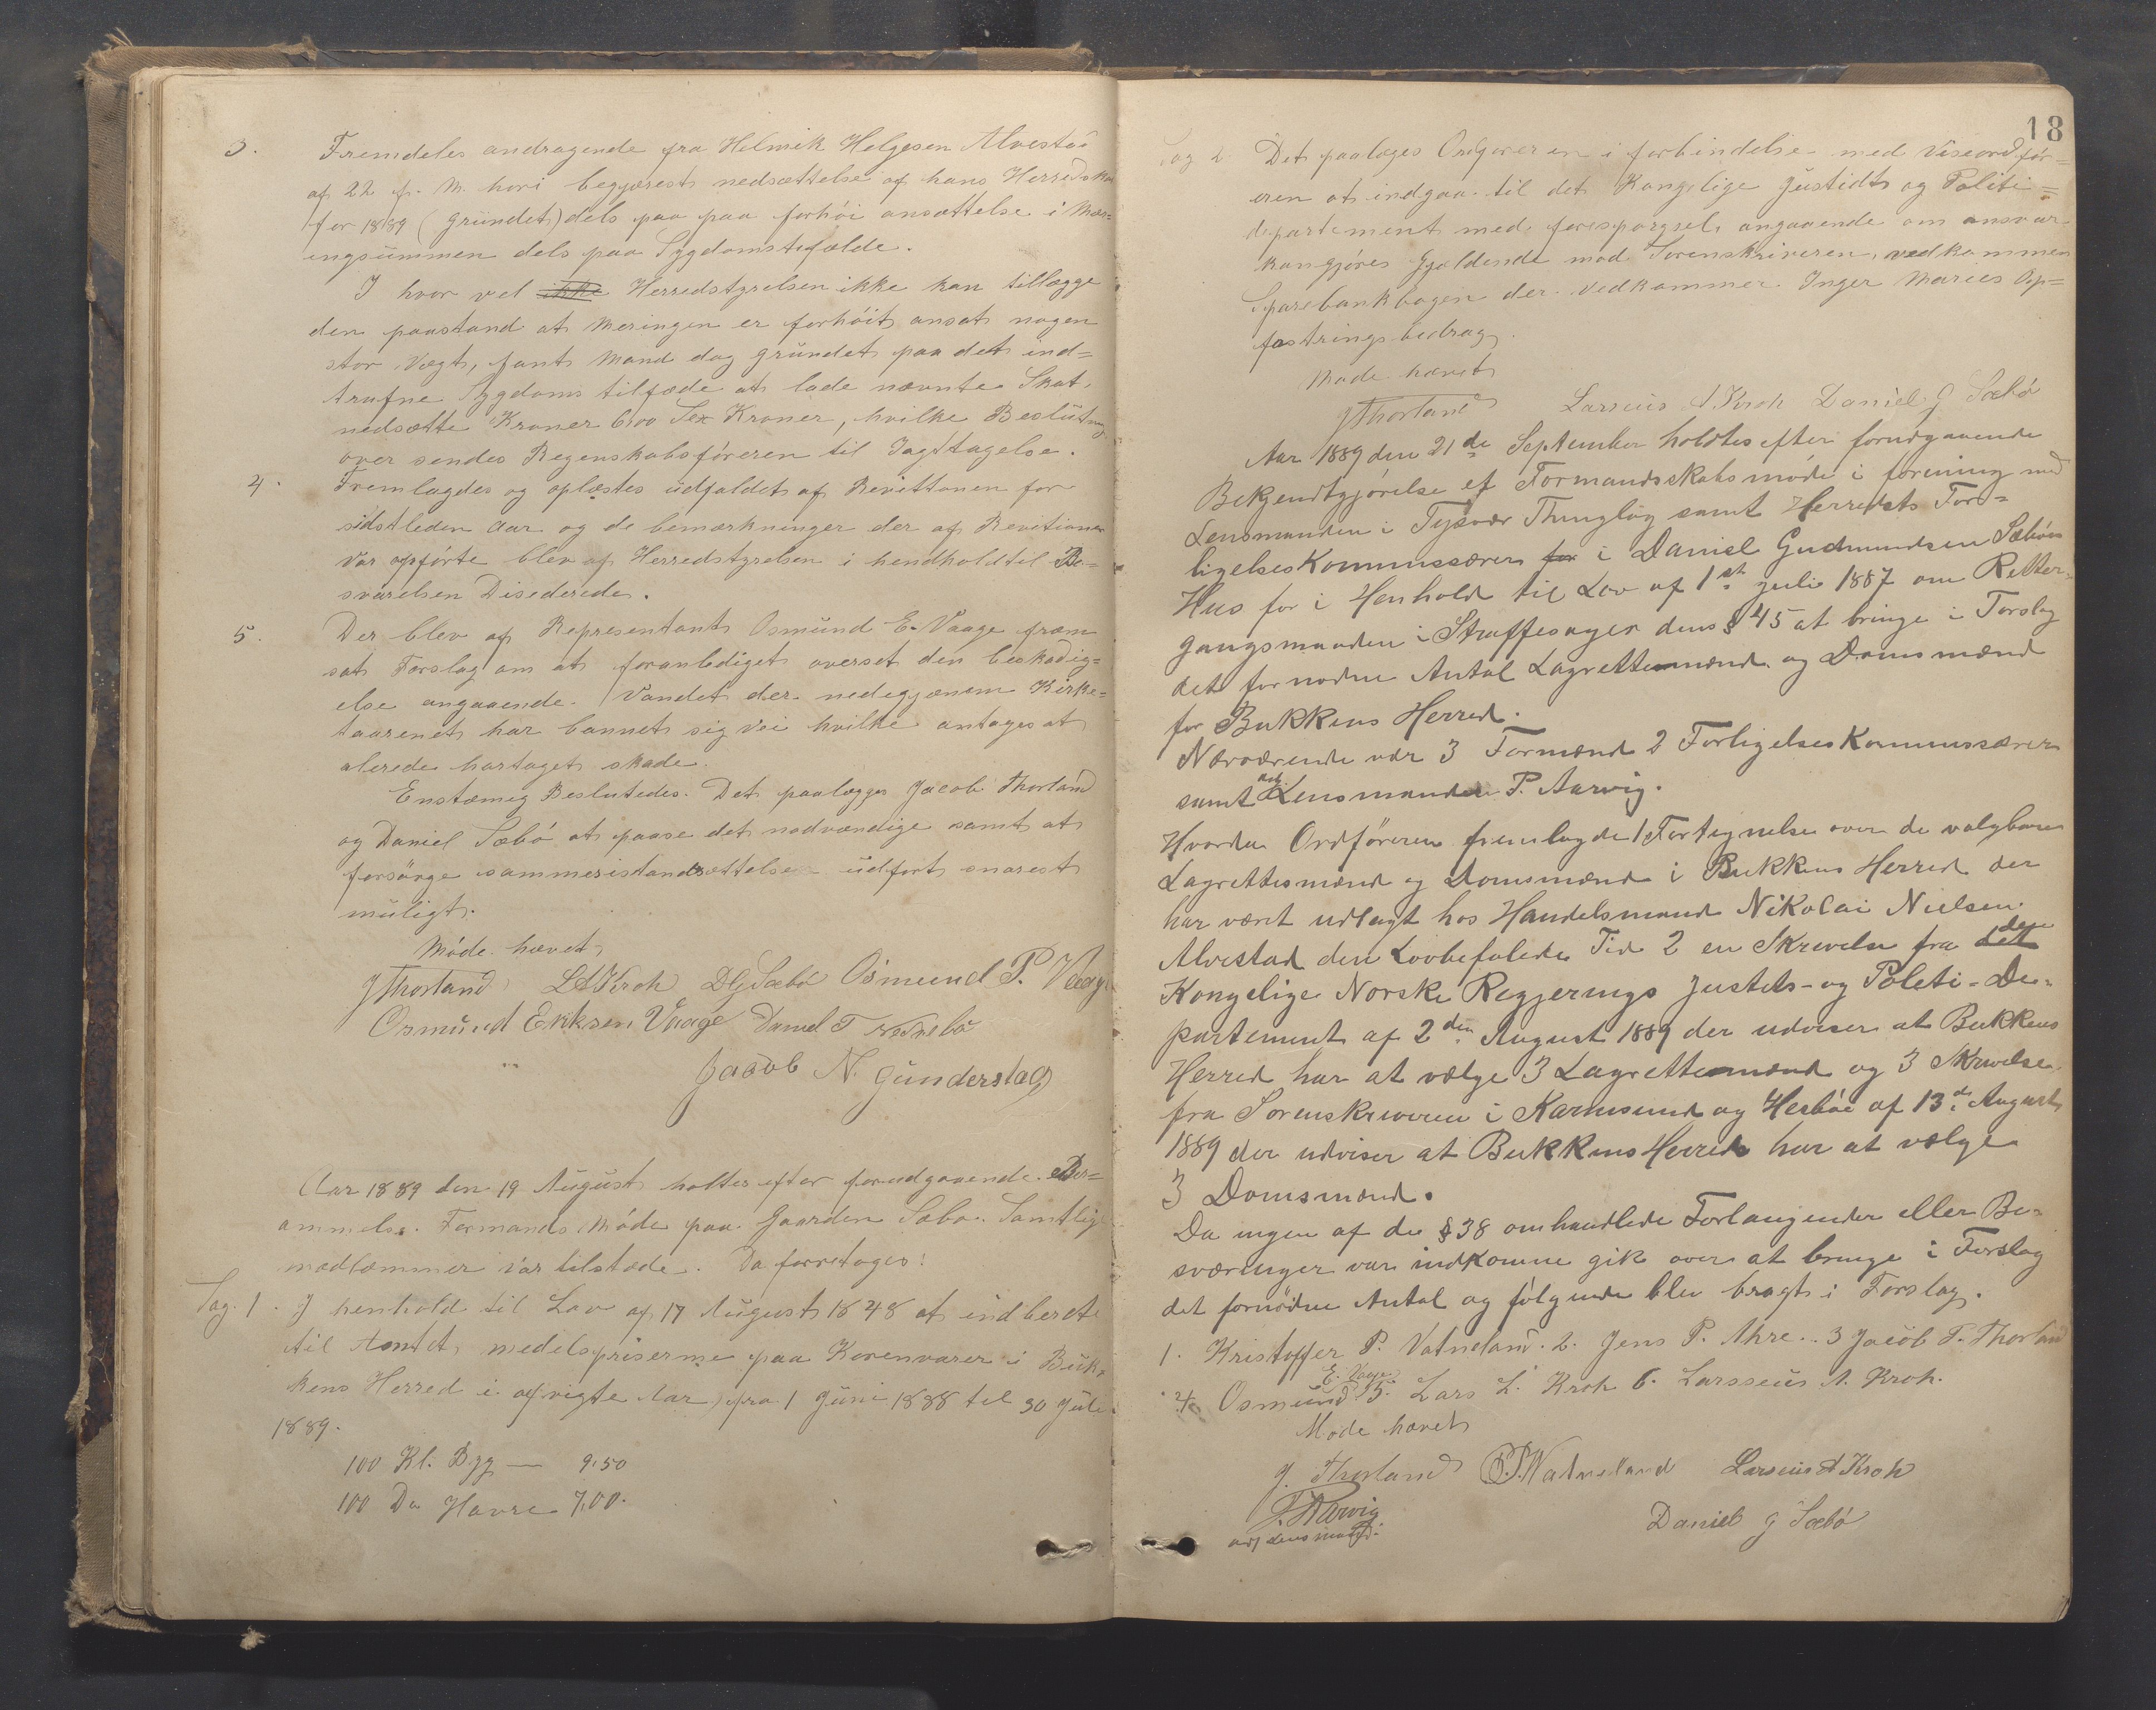 3. Fremdeles andragende fra Helmik Helgesen Alvestad
af 22 f. M. hvori begjærest nedsættelse af hans Herredskat
for 1889 (gründet) dels paa paa forhöi ansættelse i Mær=
ingsümmen dels paa Sygdomstefælde.
I hvor vel ikke Herredstyrelsen ikke kan tillægge
den paastand at Meringen er forhöit ansat nogen
stor Vægt, fant Mand dog gründet paa det ind=
trufne Sygdoms tilfæde at lade nævnte Skat
nedsætte Kroner 600 Sex Kroner, hvilke Beslütning
over sendes Regenskabsföreren til Iagttagelse.
4. Fremlagdes og oplæstes üdfaldet af Revittonen for
sidstleden Aar og de bemærkninger der af Revitionen
var opförte blev af Herredstyrelsen i hendhold til Be=
svarelsen Disederede.
5. Der blev af Representant Osmünd E. Vaage frem
sat Forslag om at foranlediget overset den beskadig=
else angaaende Vandet der nedegjænem Kirke=
taarenet har bannet sig vei hvilke antages at
alerede hartaget skade.
Enstæmig Beslutedes. Det paalægges Jacob Thorland
og Daniel Sæbö at paase det nødvændige samt at
forsörge sammesistandsættelse üdfort snarest
müligt.
Möde hævet
J Thorland LAKroh DGSæbö Osmund P. Vaage
Osmünd Eriksen Vaage Daniel T
Jacob N. Günderstad
Aar 1889 den 19 August holtes efter forudgaaende Ber=
ammelse Formands Möde paa Gaarden Sæbø. Samtlige
medlæmmer var tilstæde. Da forretoges:
Sag. 1. I henhold til Lov af 17 August 1848 at indberete
til Amtet medelspriserme paa Korenvarer i Buk=
kens Herred i afvigte Aar, fra 1 Juni 1888 til 30 Juli
1889.
100 Kl. Byg — 9.50
100 Do Havre 7.00.
18
Sag 2. Det paalæges Ordföreren i forbindelse med Viseordför=
eren at indgaa til det Kongelige Justidts og Politi=
departement med forespörgsel angaaende om ansvar
kangjöres gjældende mod Sorenskriveren, vedkommen
Sparebankbogen der vedkommer Inger Maries Op=
fostringsbidrag.
Möde hævet
JThorland Larseüs A Kroh Daniel G Sæbö
Aar 1889 den 21de September holdtes efter forudgaaende
Bekjendtgjörelse et Formandsskabsmöde i forening med
Lensmanden i Tysvær Thinglag samt Herredets For=
ligelses Kommissærer for i Daniel Gudmundsen Sæbös
Hus for i Henhold til Lov af 1st juli 1887 om Retter=
gangsmaaden i Straffesager dens § 45 at bringe i Forslag
det fornødne Antal Lagrettemænd og Domsmænd
for Bukkens Herred.
Nærværende var 3 Formænd 2 Forligelses Kommissærer
samt adj Lensmanden P. Aarvig.
Hvorda Ordföreren fremlagde 1 Fortegnelse over de valgbare
Lagrettesmænd og Domsmænd i Bukkens Herred der
har været udlagt hos Handelsmand Nikolai Nielsen
Alvestad den Lovbefalede Tid 2 en Skrivelse fra det
Kongelige Norske Regjerings Justits- og Poleti-De=
partement af 2den August 1889 der udviser at Bukkens
Herred har at vælge 3 Lagrettemænd og 3 Skrivelse
fra Sorenskriveren i Karmsund og Hesböe af 13de August
1889 der udviser at Bukkens Herred har at vælge
3 Domsmænd.
Da ingen af de § 38 omhandlede Forlangender eller Be=
sværinger var indkomne gik over at bringe i Forslag
det fornödne Antal og fölgende blev bragt i Forslag.
1. Kristoffer P. Vatneland. 2. Jens P. Ahre.. 3 Jacob T. Thorland
4. Osmünd E. Vaage 5. Lars L. Kroh 6. Larsseüs A. Kroh.
Möde hævet
J. Thorland P.P. Watneland Larseüs A Kroh
P. Aarvig Daniel G Sæbö
adj Lensmand.